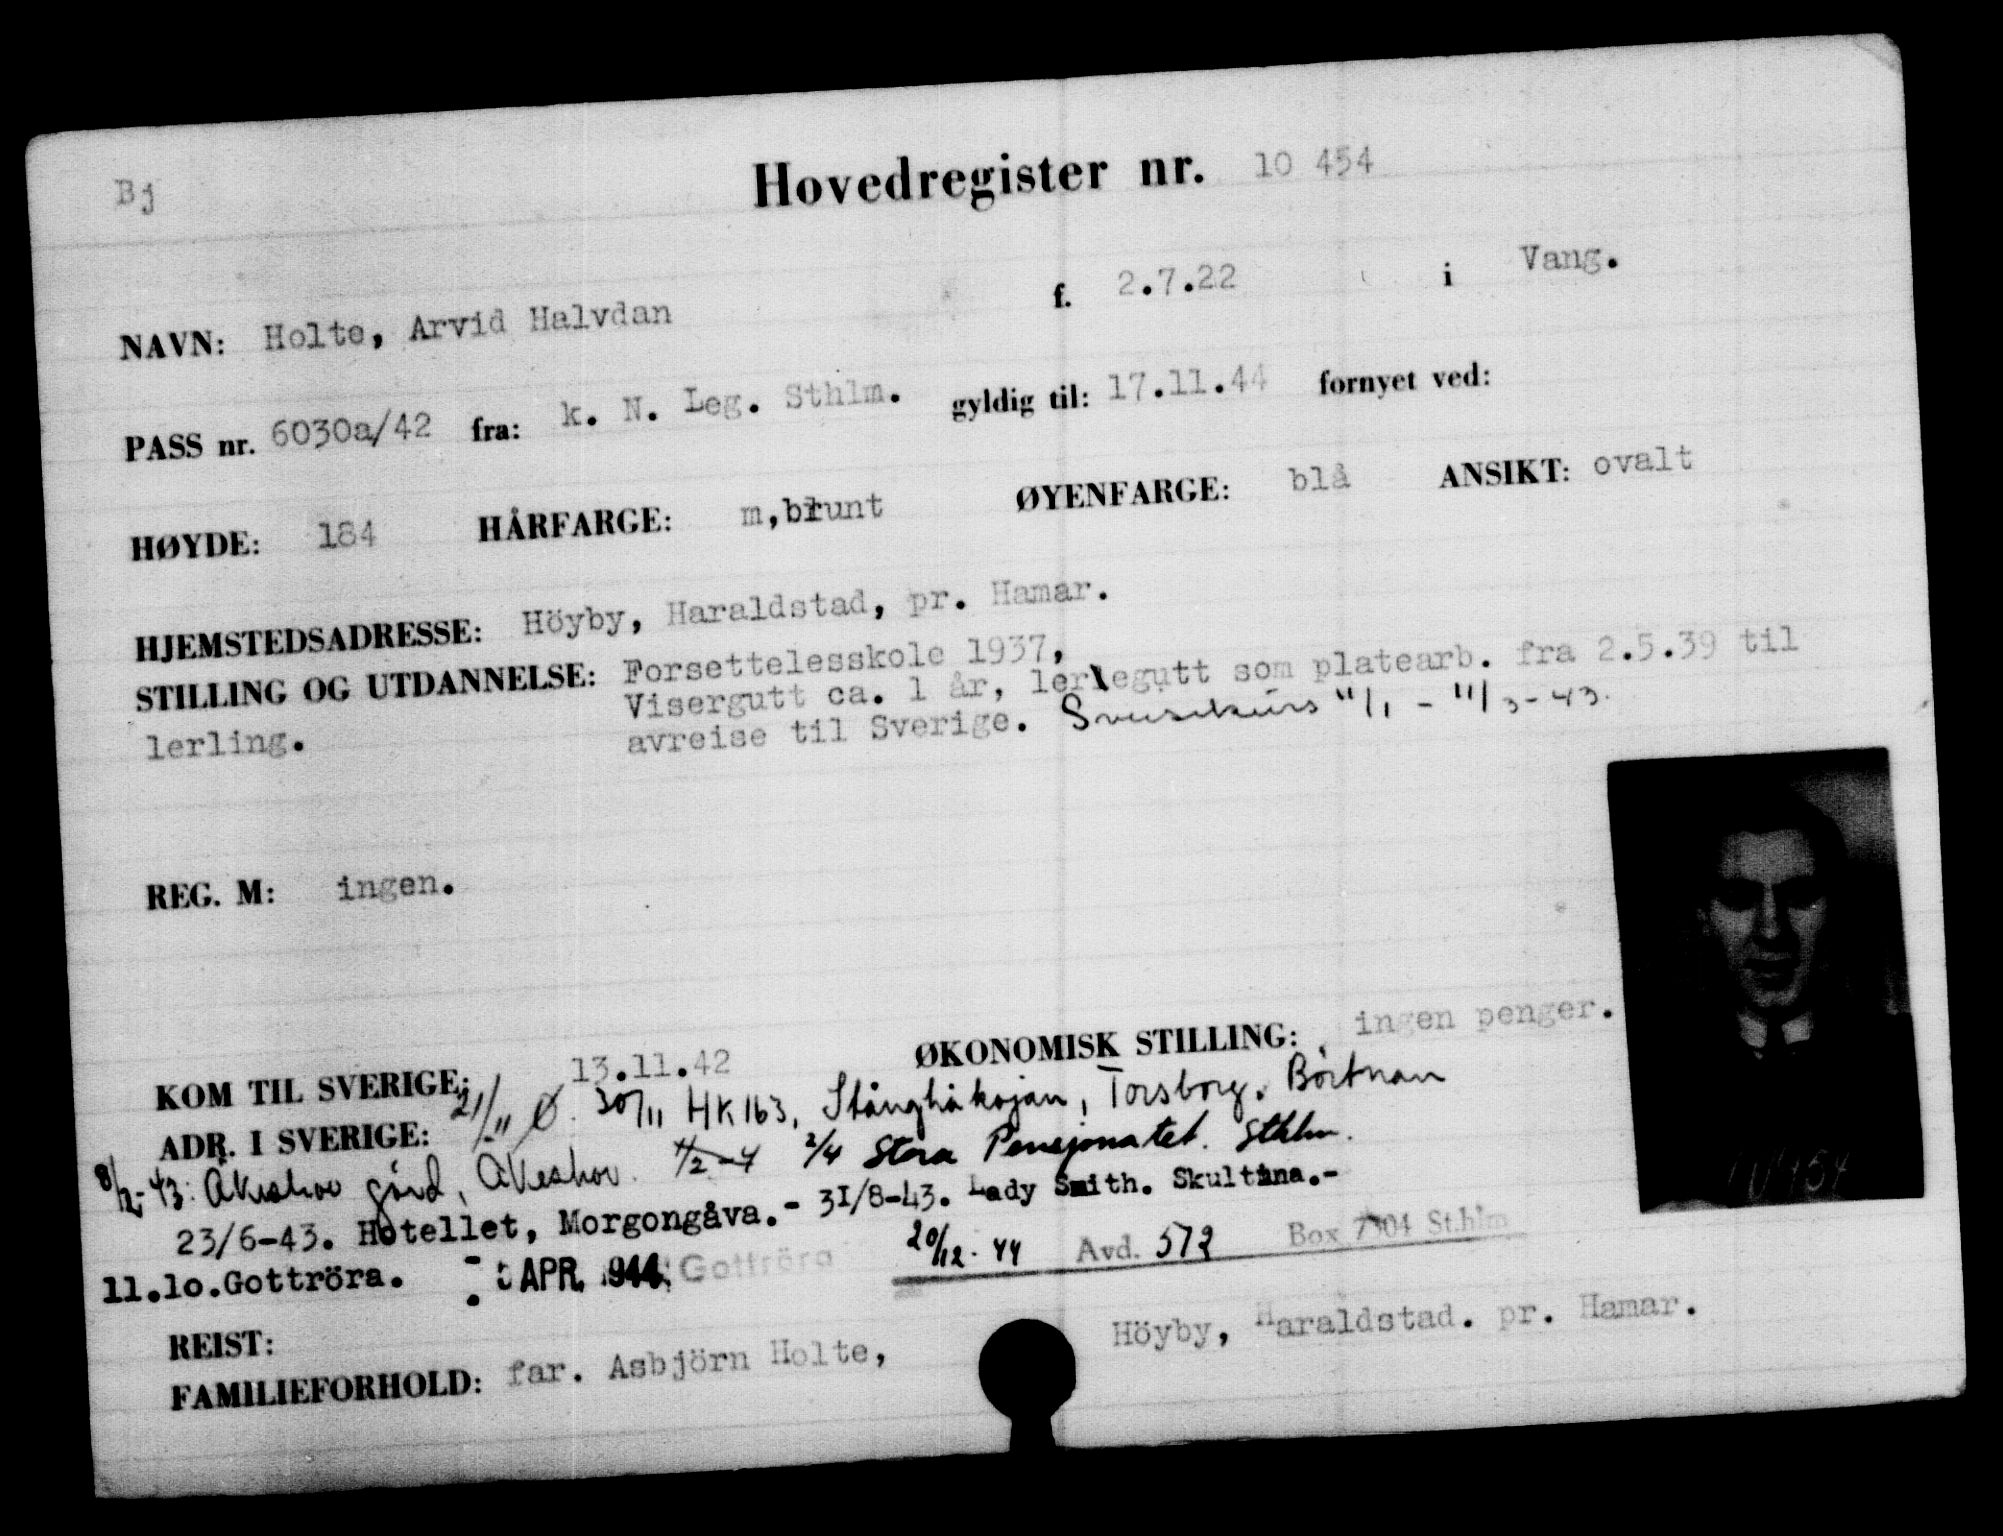 Bj
Hovedregister nr. 10 454
NAVN: Holte, Arvid Halvdan f. 2.7.22 i Vang.
PASS nr. 6030a/42 fra: k. N. Leg. Sthlm. gyldig til: 17.11.44 fornyet ved:
HØYDE: 184 HÅRFARGE: m,brunt ØYENFARGE: blå ANSIKT: ovalt
HJEMSTEDSADRESSE: Höyby, Haraldstad, pr. Hamar.
STILLING OG UTDANNELSE: Forsettelesskole 1937,
Visergutt ca. 1 år, lerlegutt som platearb. fra 2.5.39 til
lerling. avreise til Sverige. Sveisekurs 11/1 - 11/3-43.
REG. M: ingen.
KOM TIL SVERIGE: 13.11.42 ØKONOMISK STILLING: ingen penger.
ADR. I SVERIGE: 21/11 Ø. 30/11 HK 163, Stånghåkojan, Torsborg, Börtnan
8/12-43: Åkeshov gård, Åkeshov. 2/4 Stora Pensjonatet. Sthlm.
23/6-43. Hotellet, Morgongåva.- 31/8-43. Lady Smith. Skultuna.-
11.10.Gottröra. 5 APR. 1944 Gottröra 20/12-44 Avd. 572 Box 7404 St.hlm
REIST:
FAMILIEFORHOLD: far. Asbjörn Holte, Höyby, Haraldstad. pr. Hamar.
10454